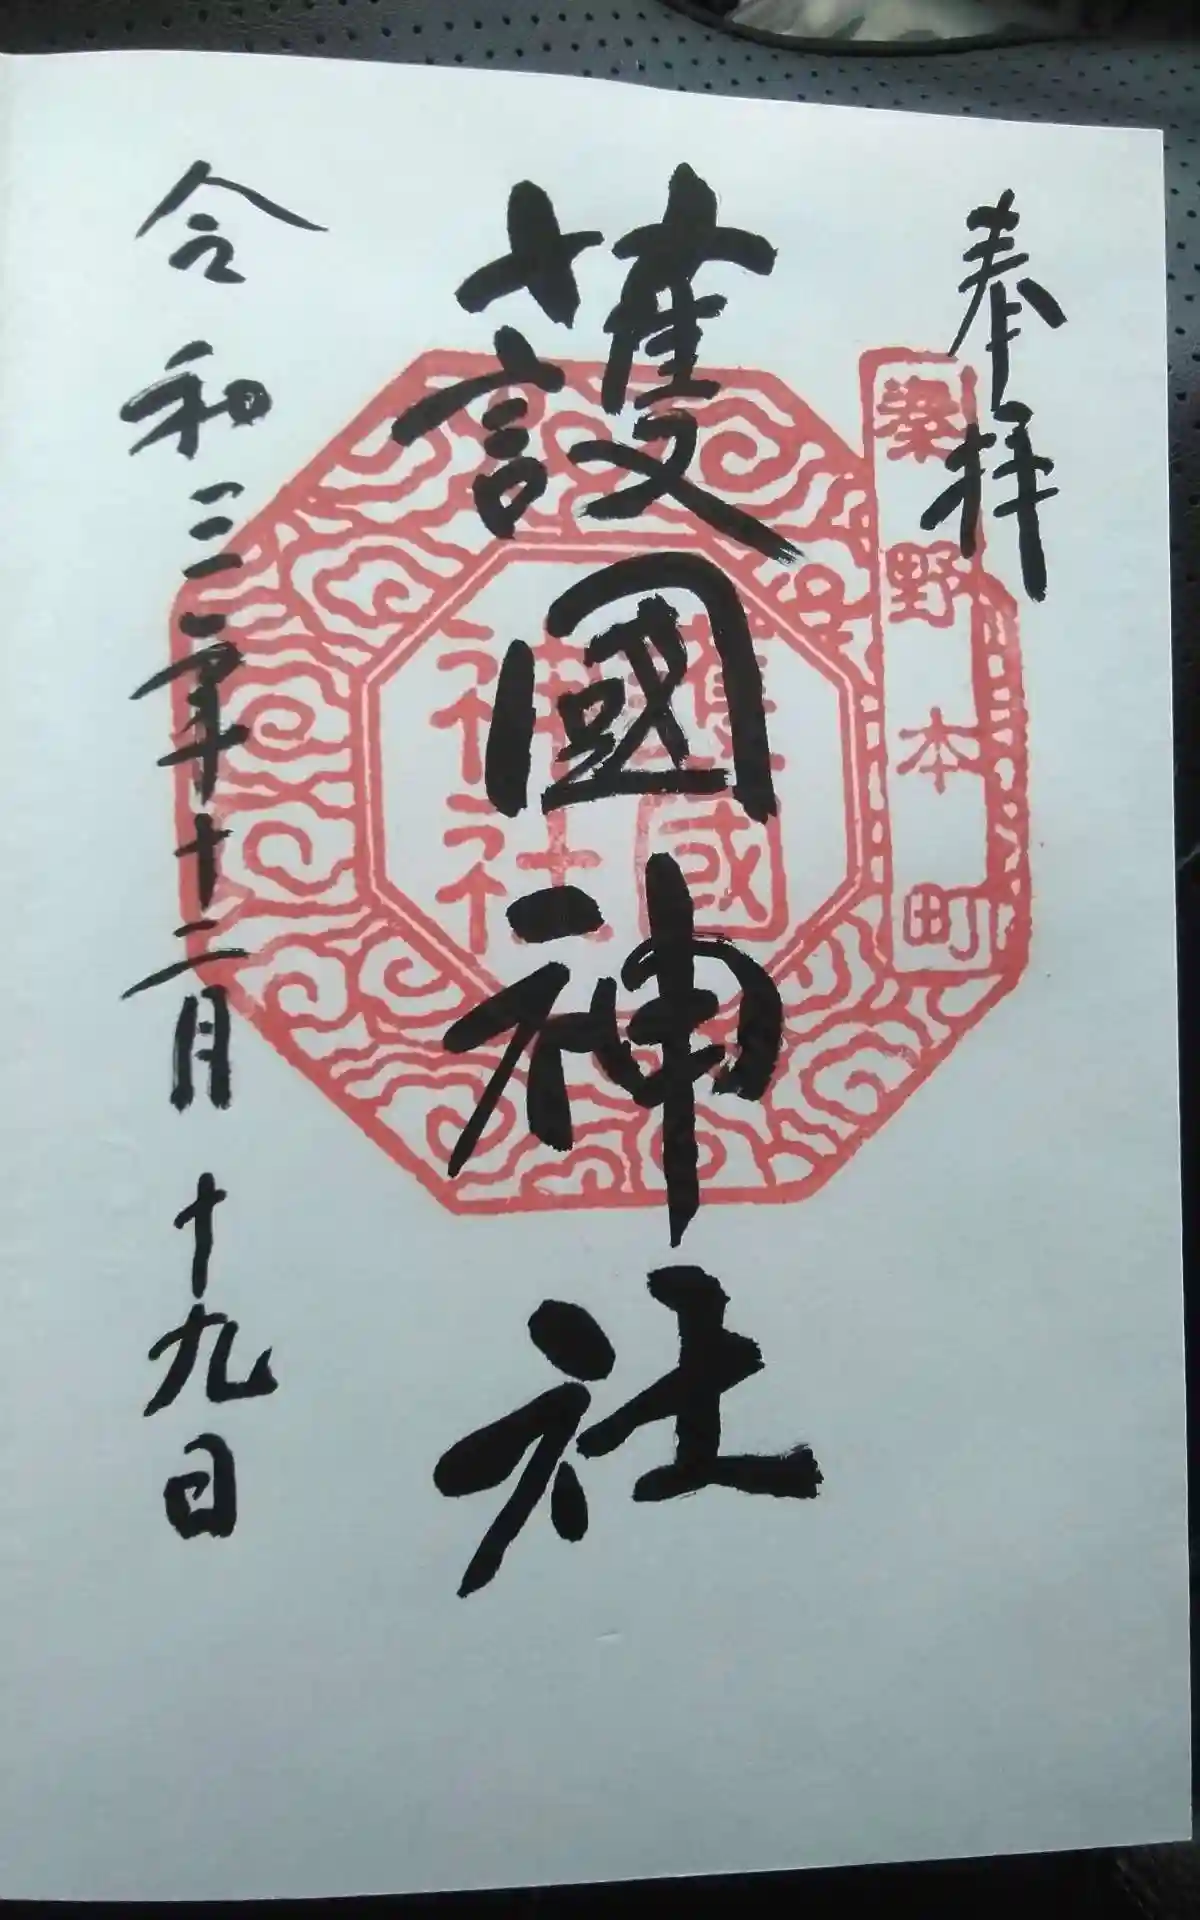 奉拝
秦野本町
護國神社
護國
神社
令和三年十二月十九日